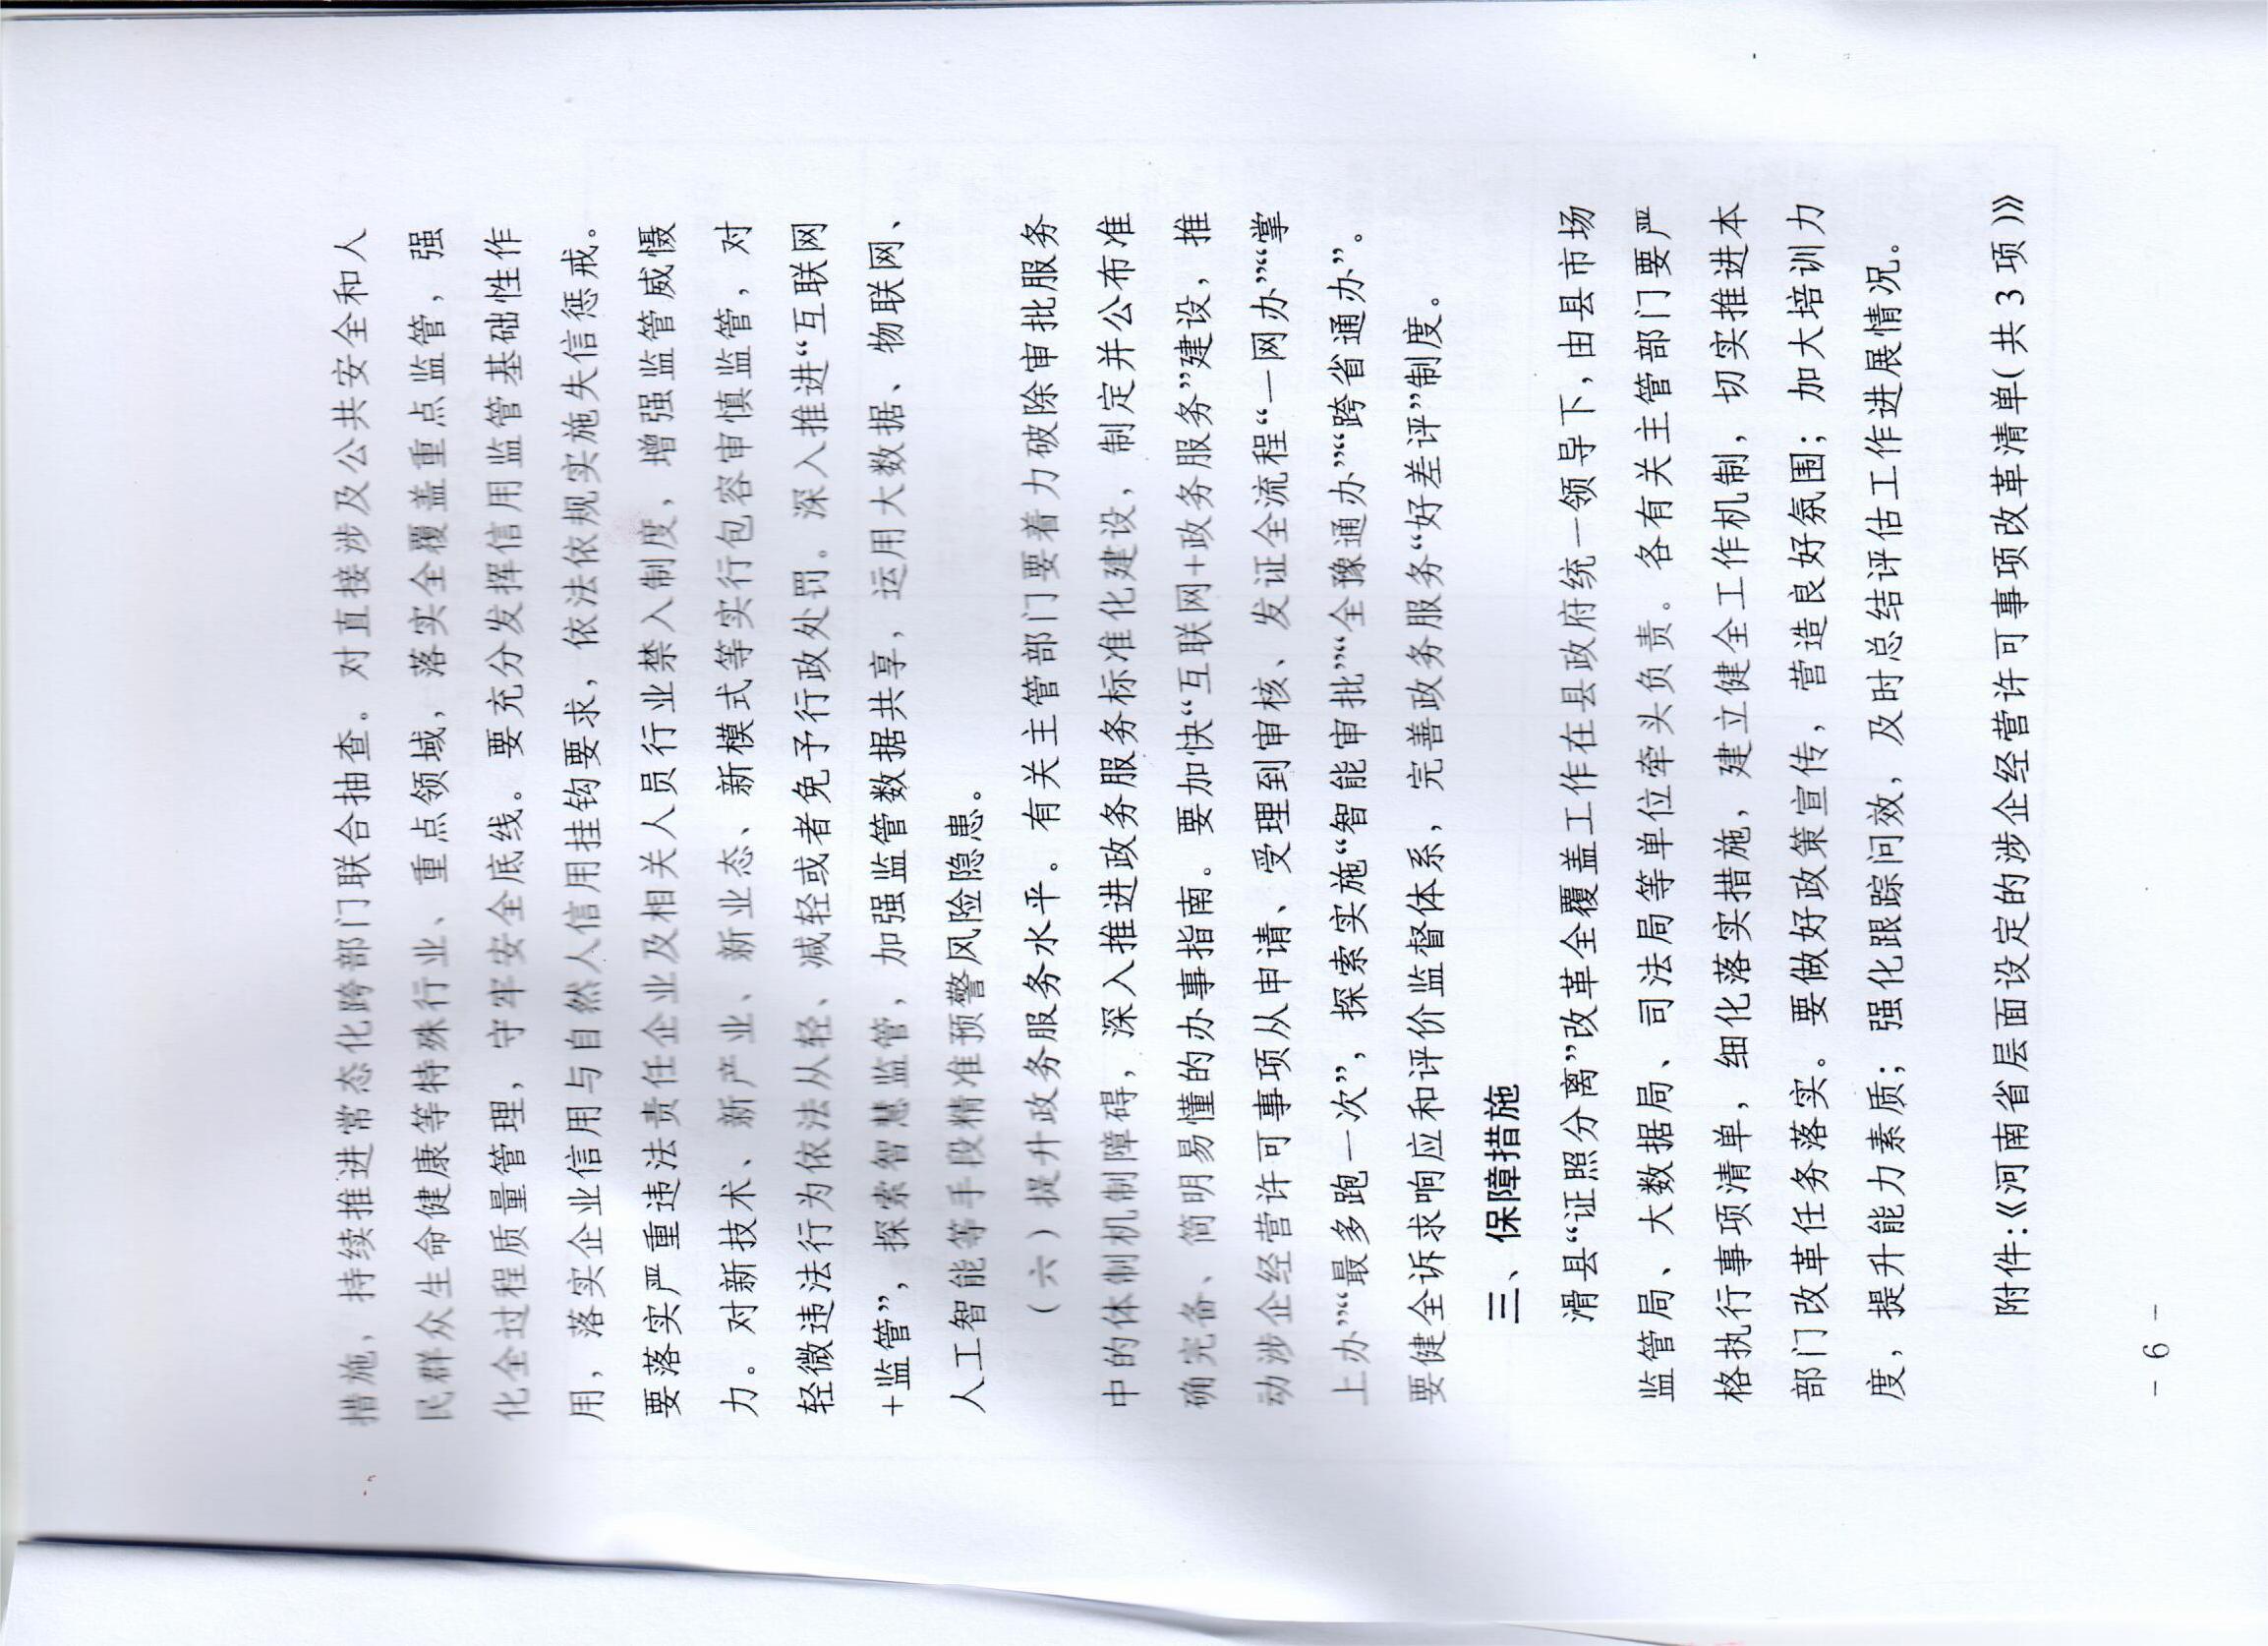 措施，持续推进常态化跨部门联合抽查。对直接涉及公共安全和人
民群众生命健康等特殊行业、重点领域，落实全覆盖重点监管，强
化全过程质量管理，守牢安全底线。要充分发挥信用监管基础性作
用，落实企业信用与自然人信用挂钩要求，依法依规实施失信惩戒。
要落实严重违法责任企业及相关人员行业禁入制度，增强监管威慑
力。对新技术、新产业、新业态、新模式等实行包容审慎监管，对
轻微违法行为依法从轻、减轻或者免予行政处罚。深入推进“互联网
+监管”，探索智慧监管，加强监管数据共享，运用大数据、物联网、
人工智能等手段精准预警风险隐患。
（六）提升政务服务水平。有关主管部门要着力破除审批服务
中的体制机制障碍，深入推进政务服务标准化建设，制定并公布准
确完备、简明易懂的办事指南。要加快“互联网+政务服务”建设，推
动涉企经营许可事项从申请、受理到审核、发证全流程“一网办”“掌
上办”“最多跑一次”，探索实施“智能审批”“全豫通办”“跨省通办”。
要健全诉求响应和评价监督体系，完善政务服务“好差评”制度。
三、保障措施
滑县“证照分离”改革全覆盖工作在县政府统一领导下，由县市场
监管局、大数据局、司法局等单位牵头负责。各有关主管部门要严
格执行事项清单，细化落实措施，建立健全工作机制，切实推进本
部门改革任务落实。要做好政策宣传，营造良好氛围；加大培训力
度，提升能力素质；强化跟踪问效，及时总结评估工作进展情况。
附件：《河南省层面设定的涉企经营许可事项改革清单（共 3 项）》
－ 6 －